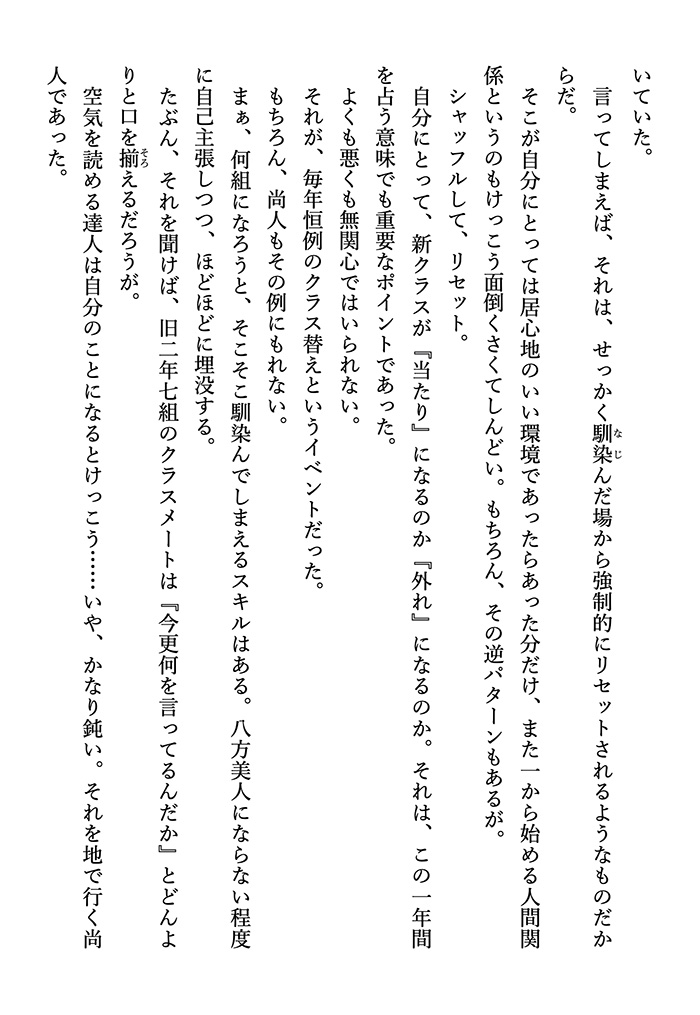 いていた。
　言ってしまえば、それは、せっかく馴染んだ場から強制的にリセットされるようなものだか
らだ。
　そこが自分にとっては居心地のいい環境であったらあった分だけ、また一から始める人間関
係というのもけっこう面倒くさくてしんどい。もちろん、その逆パターンもあるが。
　シャッフルして、リセット。
　自分にとって、新クラスが『当たり』になるのか『外れ』になるのか。それは、この一年間
を占う意味でも重要なポイントであった。
　よくも悪くも無関心ではいられない。
　それが、毎年恒例のクラス替えというイベントだった。
　もちろん、尚人もその例にもれない。
　まぁ、何組になろうと、そこそこ馴染んでしまえるスキルはある。八方美人にならない程度
に自己主張しつつ、ほどほどに埋没する。
　たぶん、それを聞けば、旧二年七組のクラスメートは『今更何を言ってるんだか』とどんよ
りと口を揃えるだろうが。
　空気を読める達人は自分のことになるとけっこう……いや、かなり鈍い。それを地で行く尚
人であった。